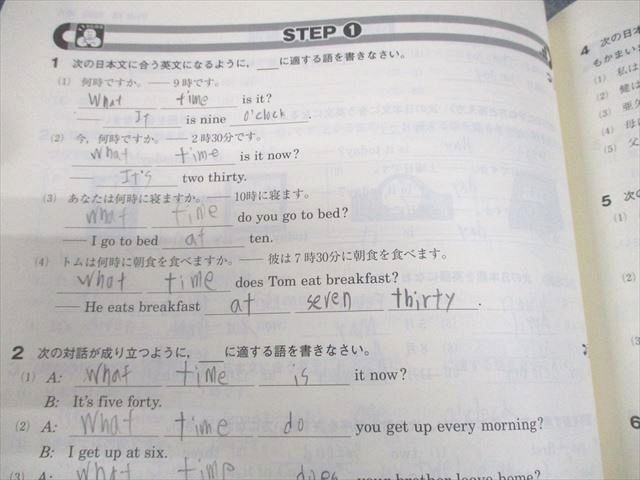 STEP 1
1 次の日本文に合う英文になるように，＿＿に適する語を書きなさい。
(1) 何時ですか。── 9時です。
What time is it?
── It is nine o'clock .
(2) 今，何時ですか。── 2時30分です。
What time is it now?
── It's two thirty.
(3) あなたは何時に寝ますか。── 10時に寝ます。
What time do you go to bed?
── I go to bed at ten.
(4) トムは何時に朝食を食べますか。── 彼は7時30分に朝食を食べます。
What time does Tom eat breakfast?
── He eats breakfast at seven thirty .
2 次の対話が成り立つように，＿＿に適する語を書きなさい。
(1) A: What time is it now?
B: It's five forty.
(2) A: What time do you get up every morning?
B: I get up at six.
(3) A: What time does your brother leave home?
4 次の日本
もかまいま
(1) 私は
(2) 健は
(3) 亜
(4) 母
(5) 父
5 次の
(1)
(2)
(3)
(4)
6